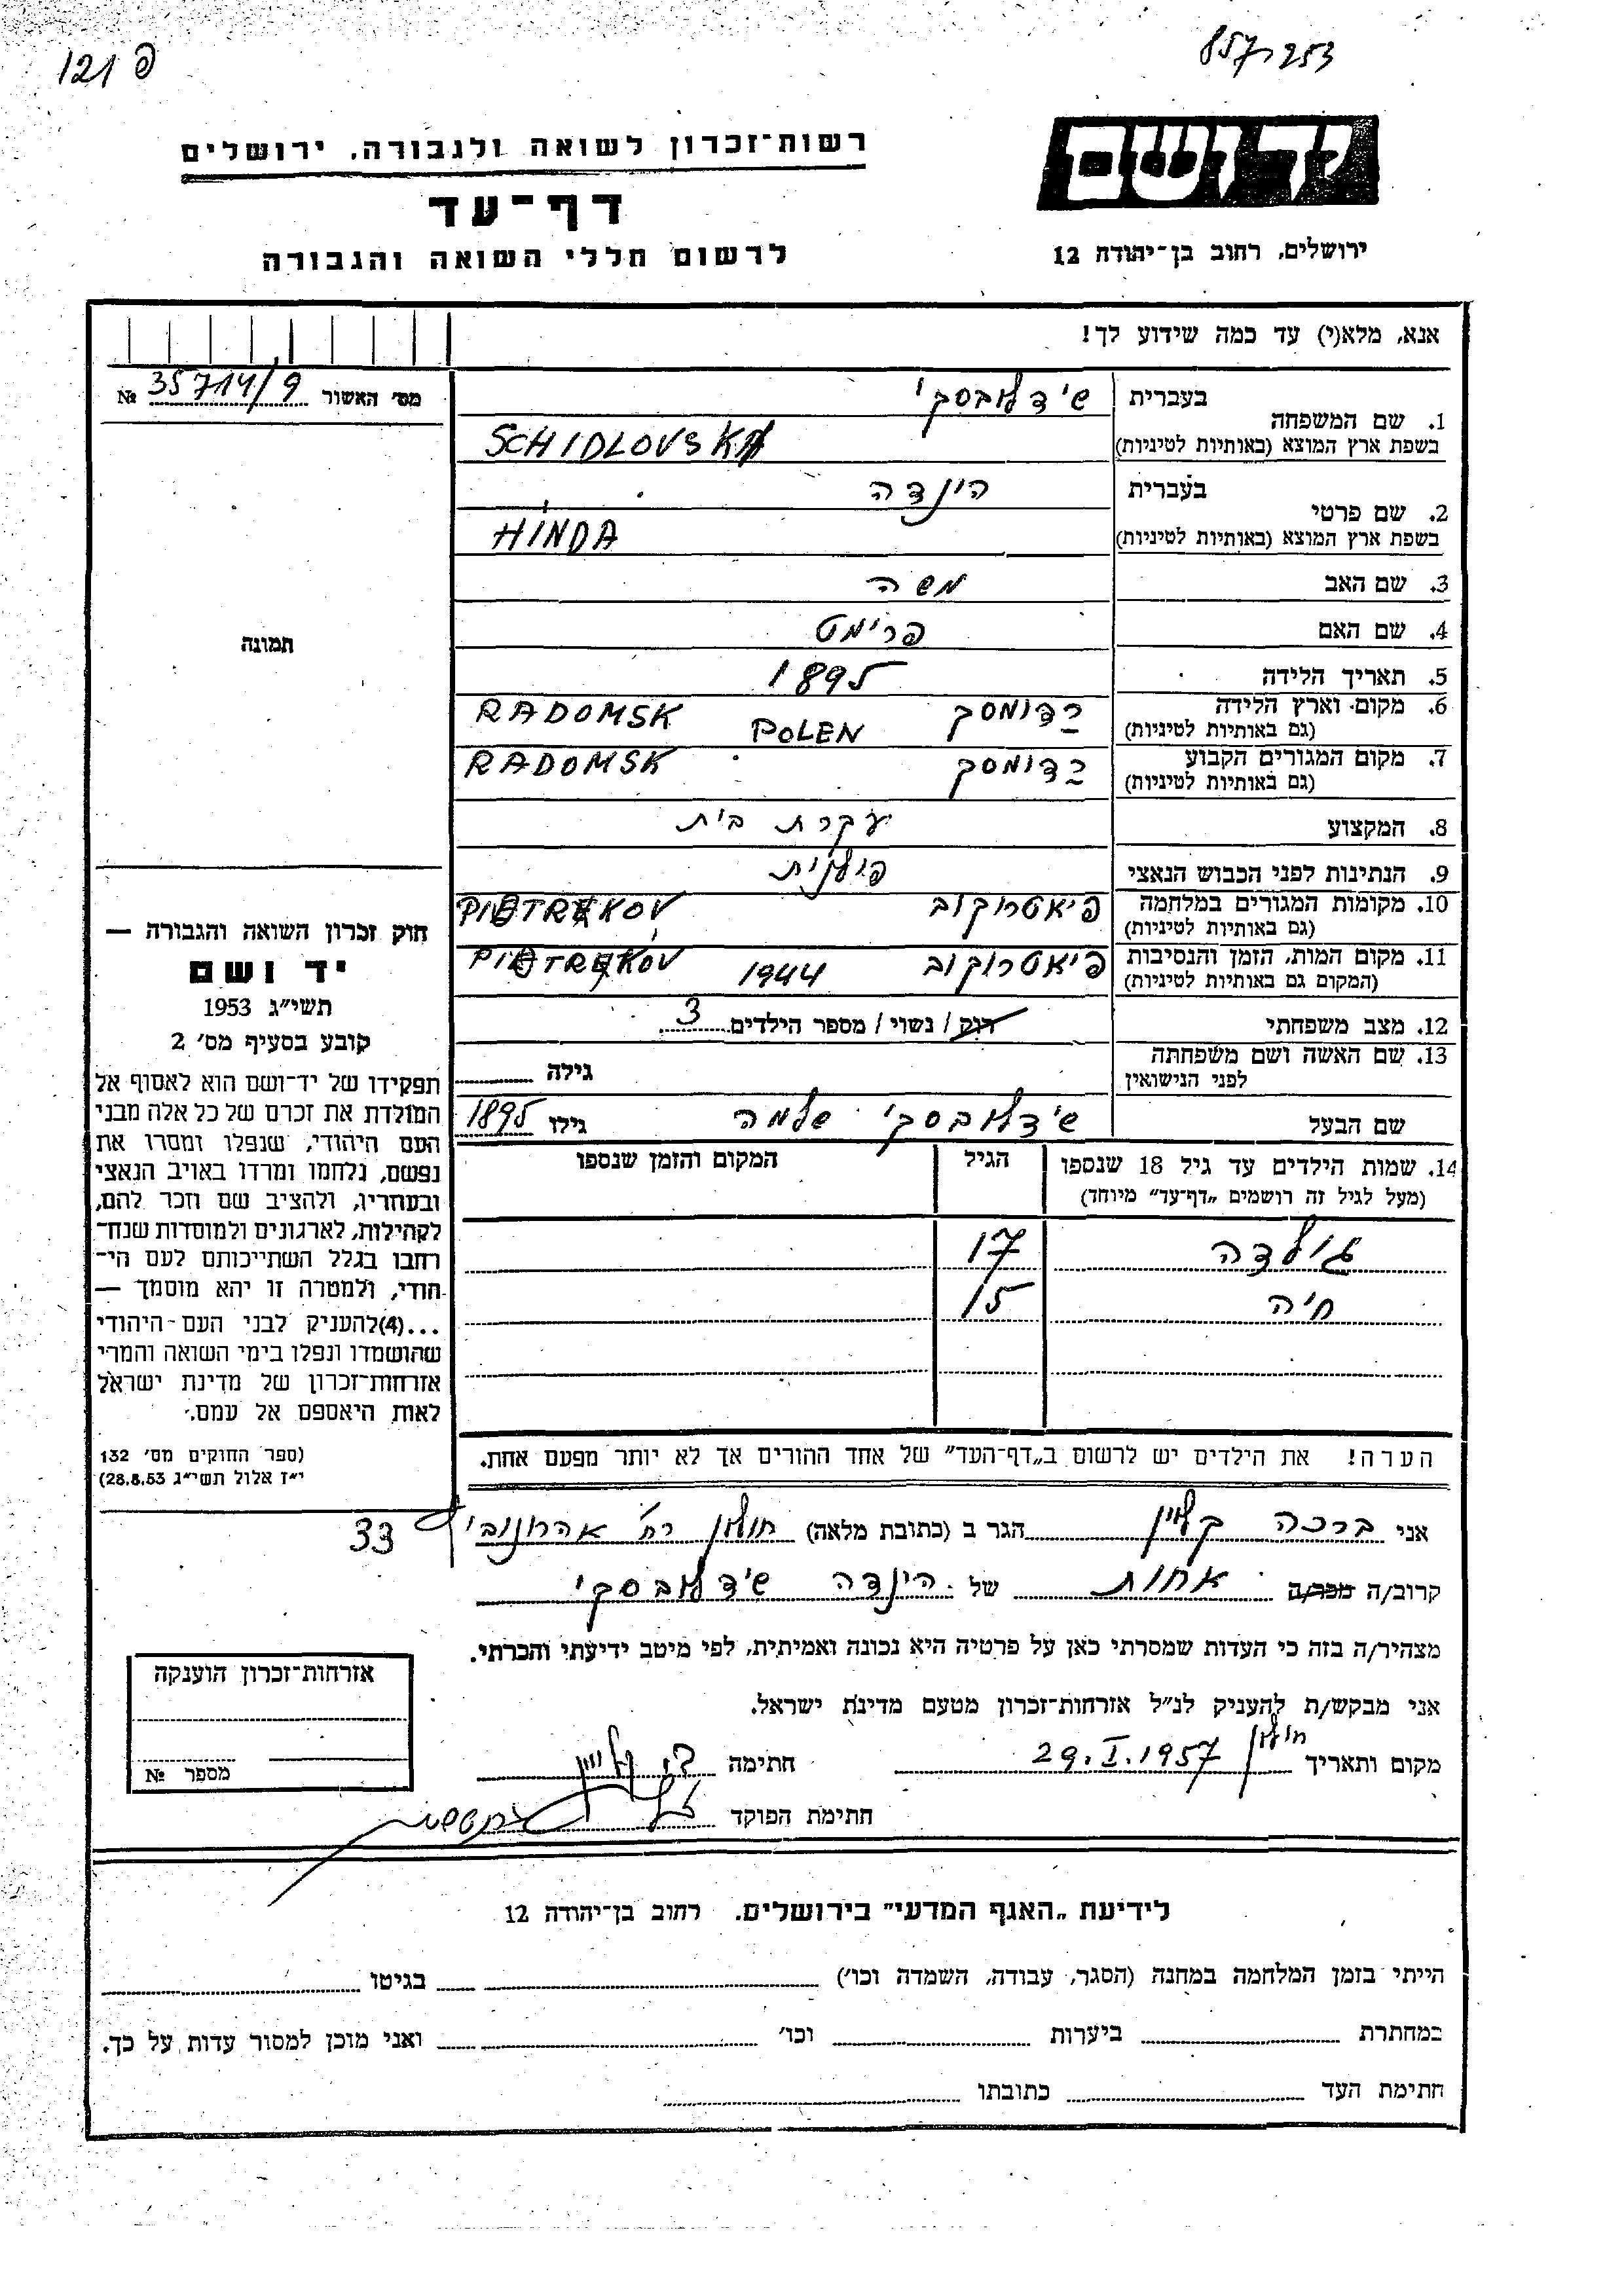 פ 121
857,253
יד ושם
רשות-זכרון לשואה ולגבורה, ירושלים
דף-עד
לרשום חללי השואה והגבורה
ירושלים, רחוב בן-יהודה 12
אנא, מלא(י) עד כמה שידוע לך!
מס' האשור 35714/9 №
1. שם המשפחה
בעברית שידלובסקי
בשפת ארץ המוצא (באותיות לטיניות) SCHIDLOVSKA
2. שם פרטי
בעברית הינדה
בשפת ארץ המוצא (באותיות לטיניות) HINDA
3. שם האב משה
4. שם האם פרימט
5. תאריך הלידה 1895
6. מקום וארץ הלידה רדומסק POLEN RADOMSK
(גם באותיות לטיניות)
7. מקום המגורים הקבוע רדומסק RADOMSK
(גם באותיות לטיניות)
8. המקצוע עקרת בית
9. הנתינות לפני הכבוש הנאצי פולנית
10. מקומות המגורים במלחמה פיאטרוקוב
(גם באותיות לטיניות)
11. מקום המות, הזמן והנסיבות פיאטרוקוב 1944
(המקום גם באותיות לטיניות)
12. מצב משפחתי רוק / נשוי / מספר הילדים 3
13. שם האשה ושם משפחתה
לפני הנישואין גילה
שם הבעל שידלובסקי שלמה גילו 1895
14. שמות הילדים עד גיל 18 שנספו הגיל המקום והזמן שנספו
(מעל לגיל זה רושמים „דף-עד" מיוחד)
גולדה 17
חיה 15
הערה! את הילדים יש לרשום ב„דף-העד" של אחד ההורים אך לא יותר מפעם אחת.
תמונה
חוק זכרון השואה והגבורה —
יד ושם
תשי"ג 1953
קובע בסעיף מס' 2
תפקידו של יד-ושם הוא לאסוף אל
המולדת את זכרם של כל אלה מבני
העם היהודי, שנפלו ומסרו את
נפשם, נלחמו ומרדו באויב הנאצי
ובעוזריו, ולהציב שם וזכר להם,
לקהילות, לארגונים ולמוסדות שנח-
רחבו בגלל השתייכותם לעם הי-
הודי, ולמטרה זו יהא מוסמך —
...(4)להעניק לבני העם היהודי
שהושמדו ונפלו בימי השואה והמרי
אזרחות-זכרון של מדינת ישראל
לאות היאספם אל עמם.
(ספר החוקים מס' 132
י"ז אלול תשי"ג 28.8.53)
אני ברכה קליין הגר ב (כתובת מלאה) חולון רח' אהרונוביץ 33
קרוב/ה מכר/ה אחות של הינדה שידלובסקי
מצהיר/ה בזה כי העדות שמסרתי כאן על פרטיה היא נכונה ואמיתית, לפי מיטב ידיעתי והכרתי.
אני מבקש/ת להעניק לנ"ל אזרחות-זכרון מטעם מדינת ישראל.
מקום ותאריך חולון 29.I.1957 חתימה ב. קליין
חתימת הפוקד
אזרחות-זכרון הוענקה
מספר №
לידיעת „האגף המדעי" בירושלים. רחוב בן-יהודה 12
הייתי בזמן המלחמה במחנה (הסגר, עבודה, השמדה וכו') בגיטו
במחתרת ביערות וכו' ואני מוכן למסור עדות על כך.
חתימת העד כתובתו